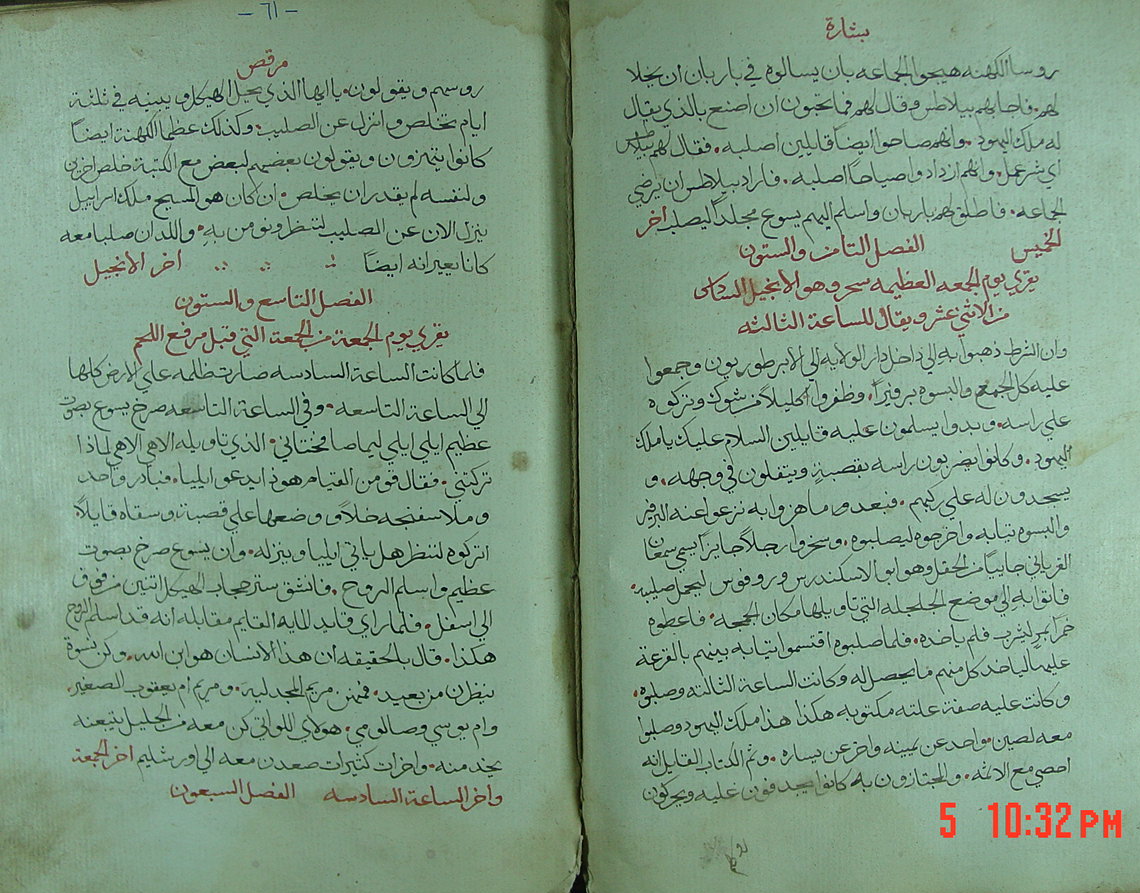 بشارة
روسا الكهنه هيجوا الجماعه بان يسالوه في باربان ان يخلا
لهم فاجابهم بيلاطس وقال لهم فما تحبون ان اصنع بالذي يقال
له ملك اليهود وانهم صاحوا ايضا قايلين اصلبه فقال لهم بيلاطس
اي شر عمل وانهم ازدادوا صياحا اصلبه فاراد بيلاطس ان يرضي
الجماعه فاطلق لهم باربان واسلم اليهم يسوع مجلدا ليصلب اخر
الخميس الفصل الثامن والستون
يقري يوم الجمعه العظيمه سحر وهو الانجيل السادس
من الاثني عشر ويقال للساعة الثالثه
وان الشرط ذهبوا به الي داخل دار الولايه الي الابرطوريون وجمعوا
عليه كل الجمع والبسوه برفيرا وظفروا اكليلا من شوك وتركوه
علي راسه وبدوا يسلمون عليه قايلين السلام عليك يا ملك
اليهود وكانوا يضربون راسه بقصبة ويتفلون في وجهه و
يسجدون له علي ركبهم فبعد ما هزوا به نزعوا عنه البرفير
والبسوه ثيابه واخرجوه ليصلبوه وسخروا رجلا جايزا يسمي سمعان
القرياني جاييا من الحقل وهو ابو الاسكندرس وروفوس ليحمل صليبه
فاتوا به الي موضع الجلجله التي تاويلها مكان الجمجمه فاعطوه
خمرا بمر ليشرب فلم ياخذه فلما صلبوه اقتسموا ثيابه بينهم بالقرعة
عليها لياخذ كل منهم ما يحصل له وكانت الساعة الثالثه وصلبوه
وكانت عليه صفة علته مكتوبه هكذا هذا ملك اليهود وصلبوا
معه لصين واحد عن يمينه واخر عن يساره وتم الكتاب القايل انه
احصي مع الاثمه والمجتازون به كانوا يجدفون عليه ويحركون
- ٦١ -
مرقص
روسهم ويقولون يا ايها الذي يحل الهيكل ويبنيه في ثلثة
ايام تخلص وانزل عن الصليب وكذلك عظما الكهنة ايضا
كانوا يتهزون ويقولون بعضهم لبعض مع الكتبة خلص اخرين
ولنفسه لم يقدر ان يخلص ان كان هو المسيح ملك اسراييل
ينزل الان عن الصليب لننظر ونومن به واللذان صلبا معه
كانا يعيرانه ايضا اخر الانجيل
الفصل التاسع والستون
يقري يوم الجمعة من الجمعة التي قبل مرفع اللحم
فلما كانت الساعة السادسه صارت ظلمه علي الارض كلها
الي الساعة التاسعه وفي الساعة التاسعه صرخ يسوع بصوت
عظيم ايلي ايلي ليما صافختاني الذي تاويله الاهي الاهي لماذا
تركتني فقال قوم من القيام هوذا يدعو ايليا فبادر واحد
وملا سفنجه خلا ووضعها علي قصبة وسقاه قايلا
اتركوه لننظر هل ياتي ايليا وينزله وان يسوع صرخ بصوت
عظيم واسلم الروح فانشق ستر حجاب الهيكل اثنين من فوق
الي اسفل فلما راي قايد المايه القايم مقابله انه قد اسلم الروح
هكذا قال بالحقيقه ان هذا الانسان هو ابن الله وكن نسوة
ينظرن من بعيد فمنهن مريم المجدلية ومريم ام يعقوب الصغير
وام يوسي وصالومي هولاي اللواتي كن معه في الجليل يتبعنه
يخدمنه واخرات كثيرات صعدن معه الي اورشليم اخر الجمعة
واخر الساعة السادسه الفصل السبعون
5 10:32 PM